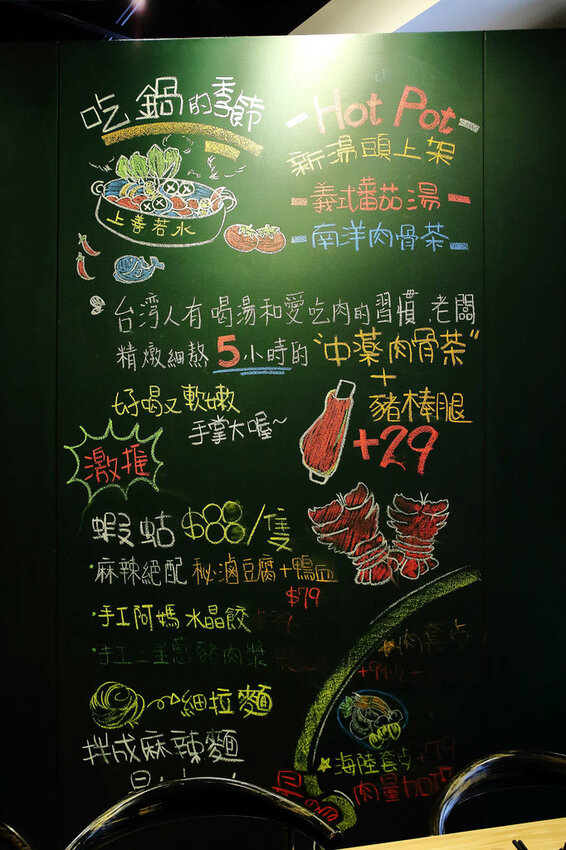 吃鍋的季節
-Hot Pot-
新湯頭上架
-義式蕃茄湯-
-南洋肉骨茶-
上善若水
台湾人有喝湯和愛吃肉的習慣,老闆
精燉細熬5小時的"中藥肉骨茶"
+
豬棒腿
+29
好喝又軟嫩
手掌大喔~
激推
蝦蛄$88/隻
·麻辣絕配 秘滷豆腐+鴨血
$79
·手工阿媽水晶餃
·手工三星蔥豬肉漿
細拉麵
拌成麻辣麵
海陸套餐+79
肉量加